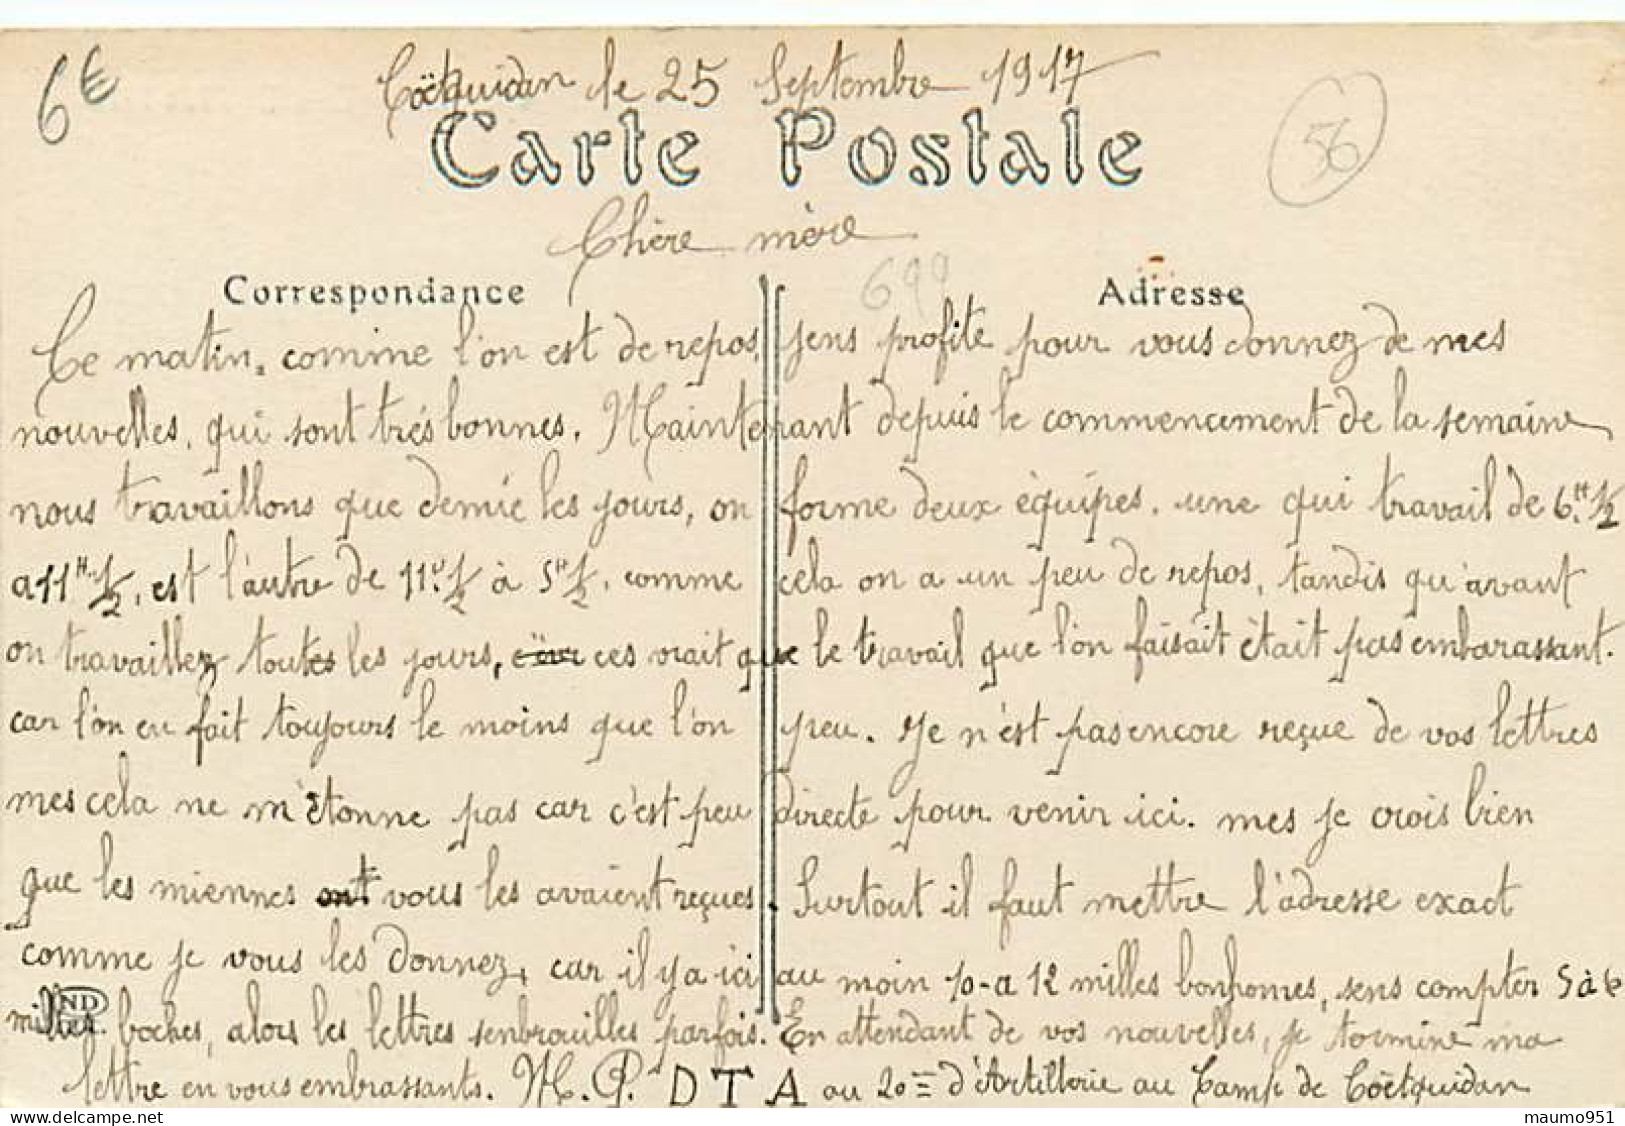 6€
Coëtquidan le 25 Septembre 1917
56
Carte Postale
Chère mère
699
Correspondance Adresse
Ce matin, comme l'on est de repos, jens profite pour vous donnez de mes
nouvelles, qui sont très bonnes. Maintenant depuis le commencement de la semaine
nous travaillons que demie les jours, on forme deux èquipes. une qui travail de 6.H 1/2
a 11H 1/2, est l'autre de 11H 1/2 à 5H 1/2. comme cela on a un peu de repos, tandis qu'avant
on travaillez toutes les jours, ces vrait que le travail que l'on faisait ètait pas embarassant.
car l'on en fait toujours le moins que l'on peu. Je n'est pas encore reçue de vos lettres
mes cela ne m'ètonne pas car c'est peu directe pour venir ici. mes je crois bien
que les miennes ont vous les avaient reçues. Surtout il faut mettre l'adresse exact
comme je vous les donnez, car il y a ici au moin 10-a 12 milles bonhomes, sens compter 5 à 6
milles boches, alors les lettres senbrouilles parfois. En attendant de vos nouvelles, je termine ma
ND
lettre en vous embrassants. M.P. DTA au 20= d'Artillerie au Camp de Coëtquidan
maumo951